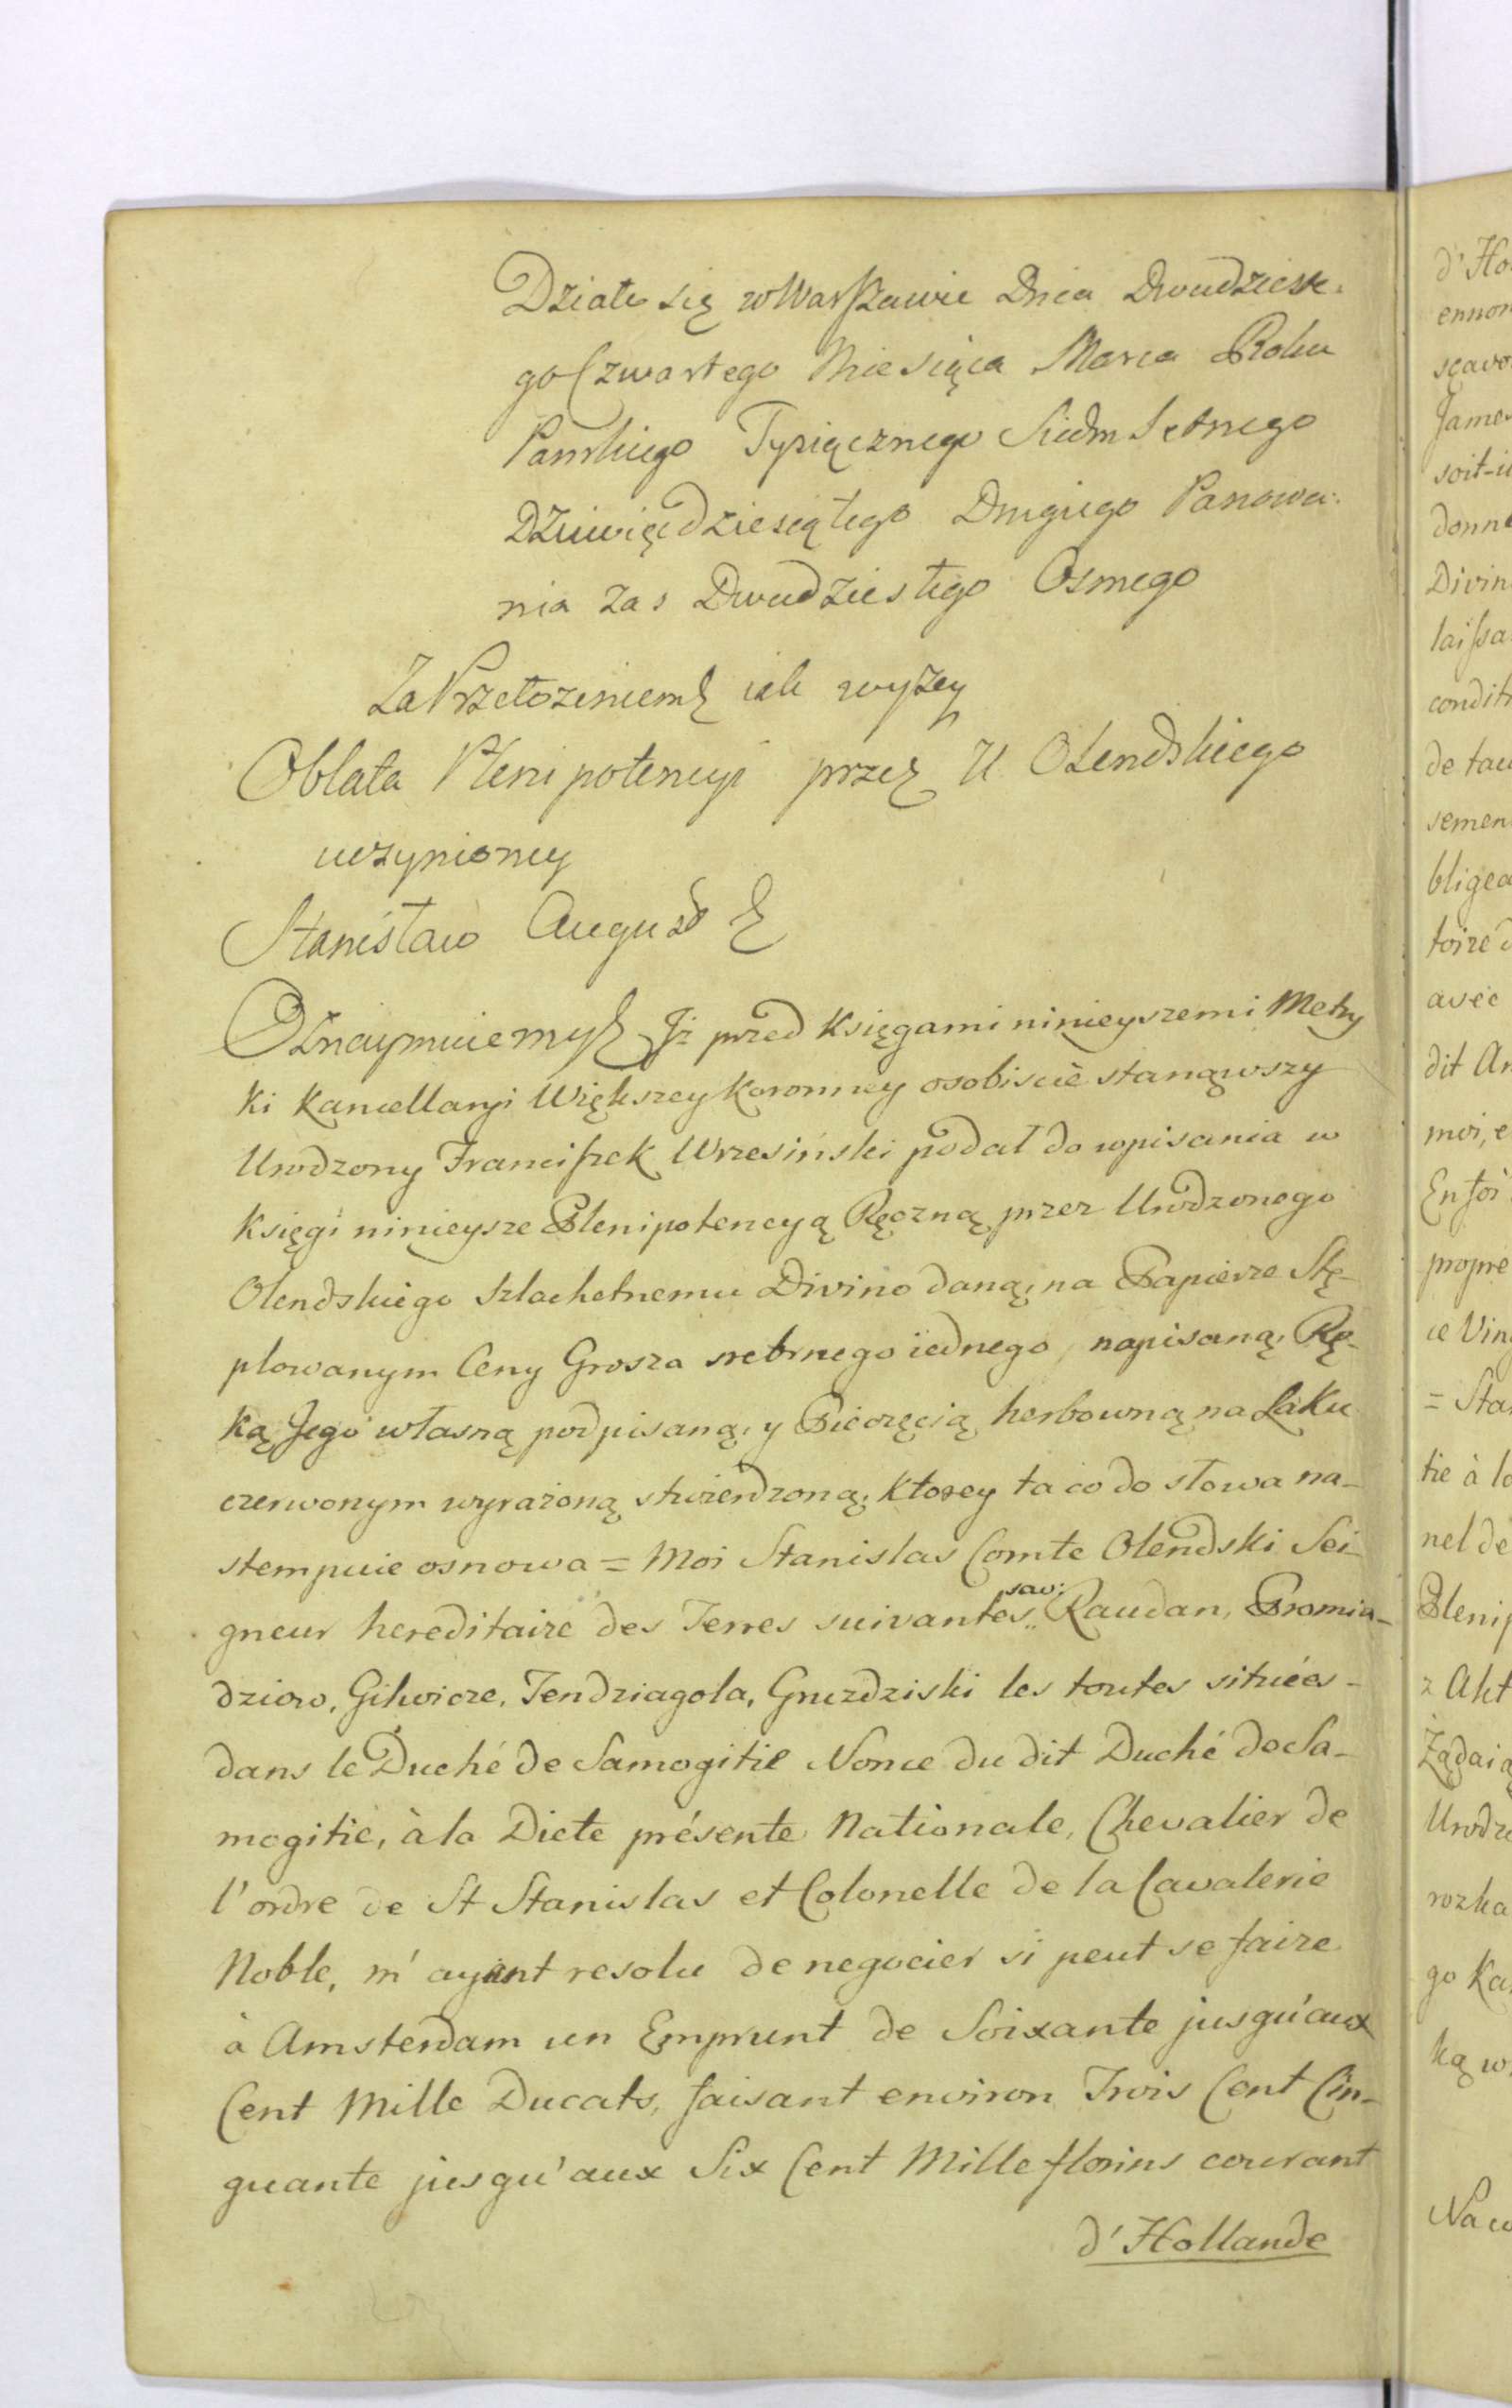 Działo się w Warszawie Dnia Dwudzieste-
go Czwartego Miesiąca Marca Roku
Pańskiego Tysiącznego Siedmsetnego
Dziewięćdziesiątego Drugiego Panowa-
nia zas Dwudziestego Osmego
Za Przełożeniem iak wyżey
Oblata Plenipotencyi przez U Olendskiego
uczynioney
Stanisław August
Oznaymuiemy Jż przed Księgami ninieyszemi Metry
ki Kancellaryi Większey Koronney osobiscie stanąwszy
Urodzony Franciszek Wrzesiński podał do wpisania w
Księgi ninieysze Plenipotencyą Ręczną przez Urodzonego
Olendskiego Szlachetnemu Divino daną, na Papierze Stę-
plowanym Ceny Grosza srebrnego iednego, napisaną, Rę-
ką Jego własną podpisaną, y Pieczęcią herbowną na Laku
czerwonym wyrażoną stwierdzoną, Ktorey ta co do słowa na-
stempuie osnowa = Moi Stanislas Comte Olendski Sei-
gneur hereditaire des Terres suivantes sav: Raudan, Promia-
dziow, Gilwicze, Jendziagola, Gnuzdziski les toutes situées -
dans le Duché de Samogitie Nonce du dit Duché de Sa-
mogitie, à la Diete présente Nationale, Chevalier de
l'ordre de St Stanislas et Colonelle de la Cavalerie
Noble, m'ayant resolu de negocier si peut se faire
à Amsterdam un Emprunt de Soixante jusqu'aux
Cent Mille Ducats, faisant environ Trois Cent Cin-
quante jusqu'aux Six Cent Mille florins courant
d'Hollande